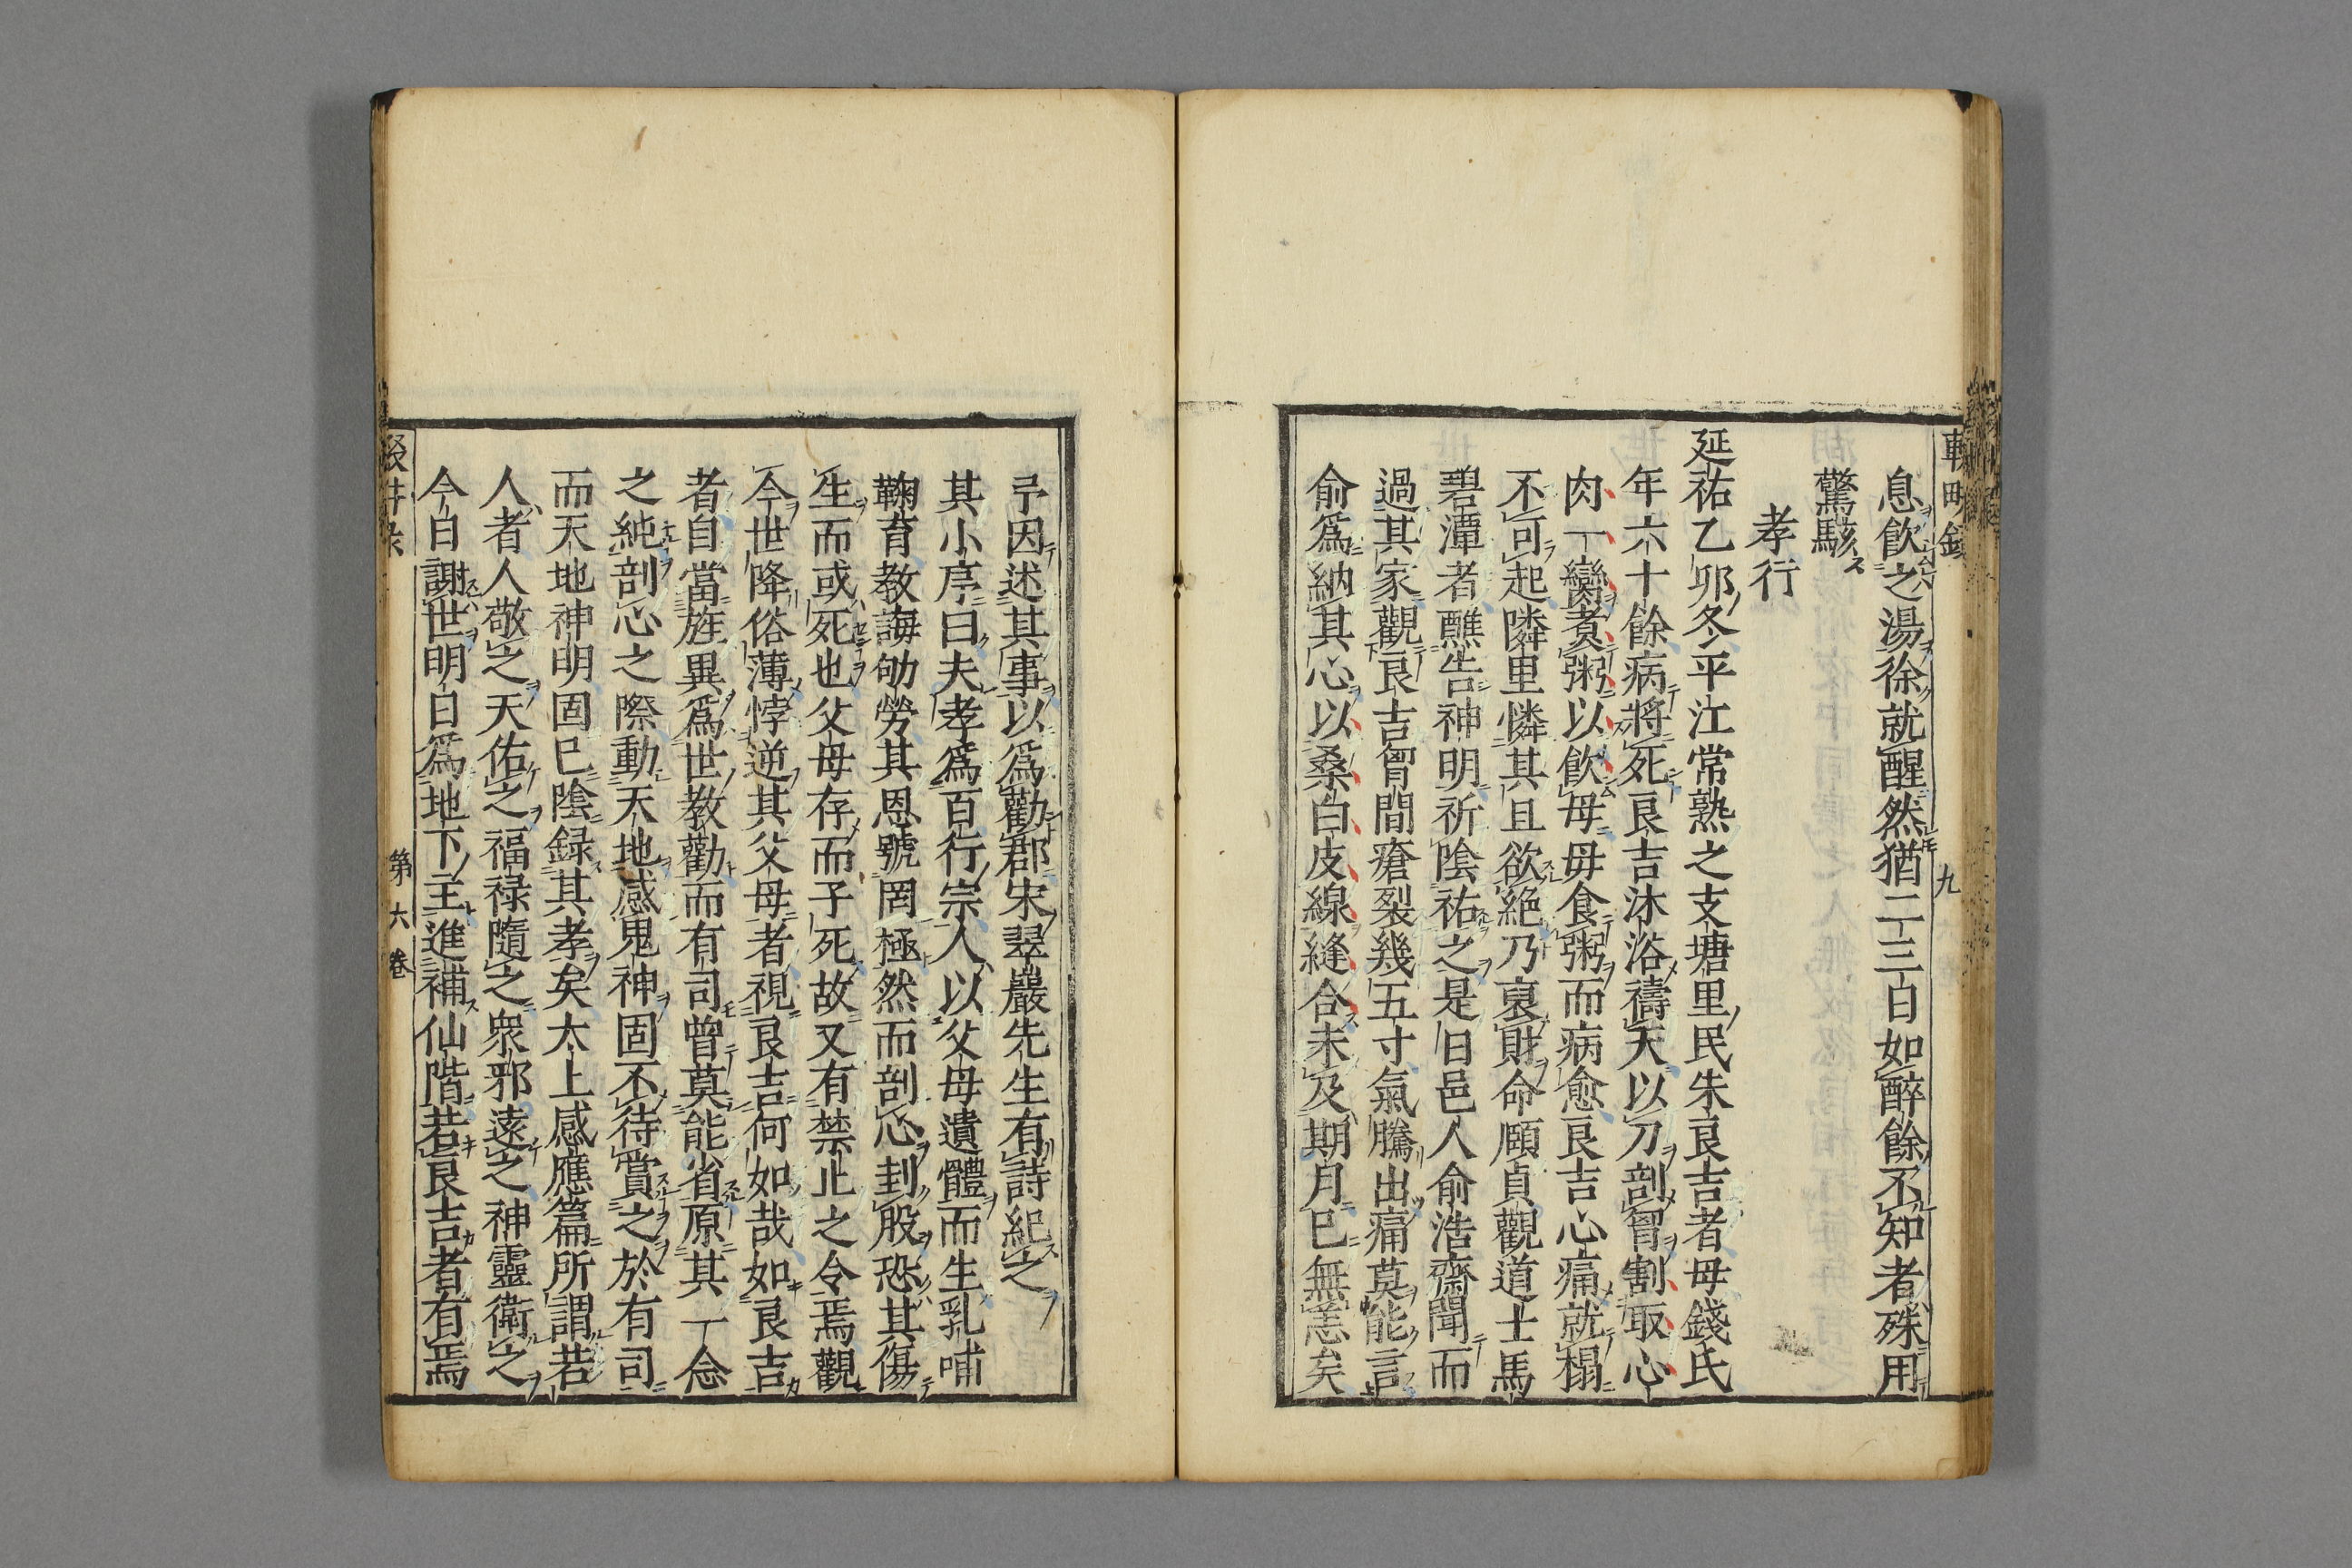 息飲之湯徐就醒然猶二三日如醉餘不知者殊用
驚駭
孝行
延祐乙卯冬平江常熟之支塘里民朱良吉者母錢氏
年六十餘病將死良吉沐浴禱天以刀剖胷割取心
肉一臠煑粥以飲母母食粥而病愈良吉心痛就榻
不可起隣里憐其且欲絶乃裒財命願貞觀道士馬
碧潭者醮告神明祈陰祐之是日邑人俞浩齋聞而
過其家觀良吉胷間瘡裂幾五寸氣騰出痛莫能言
俞爲納其心以桑白皮線縫合未及期月已無恙矣
予因述其事以爲勸郡宋翠巖先生有詩紀之
其小序曰夫孝爲百行宗人以父母遺體而生乳哺
鞠育教誨劬勞其恩號罔極然而剖心刲股恐其傷
生而或死也父母存而子死故又有禁止之令焉觀
今世降俗薄悖逆其父母者視良吉何如哉如良吉
者自當旌異爲世教勸而有司曾莫能省原其一念
之純剖心之際動天地感鬼神固不待賞之於有司
而天地神明固已陰録其孝矣太上感應篇所謂若
人者人敬之天佑之福禄隨之衆邪遠之神靈衛之
今日謝世明日爲地下主進補仙階若良吉者有焉
第六卷
九